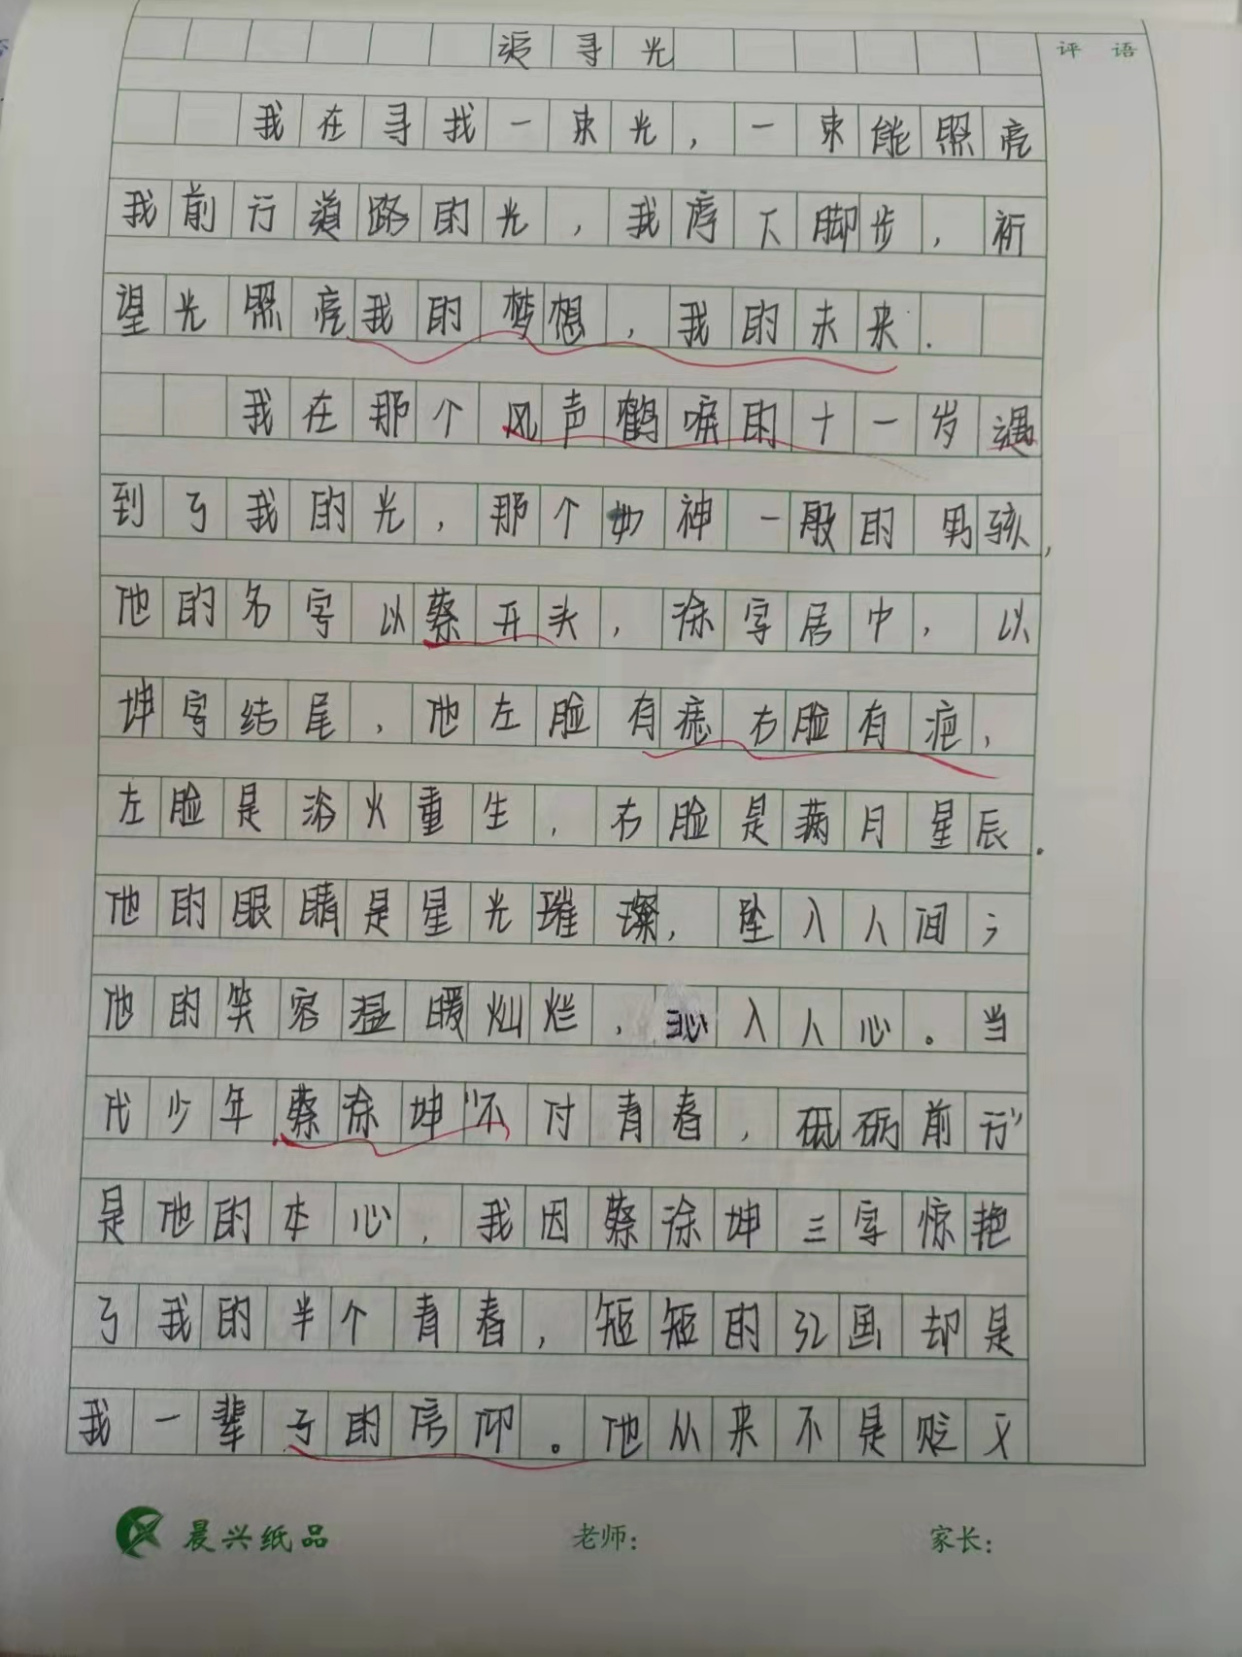 追寻光
评语
我在寻找一束光，一束能照亮
我前行道路的光，我停下脚步，祈
望光照亮我的梦想，我的未来.
我在那个风声鹤唳的十一岁遇
到了我的光，那个女神一般的男孩，
他的名字以蔡开头，徐字居中，以
坤字结尾，他左脸有痣右脸有疤，
左脸是浴火重生，右脸是满月星辰。
他的眼睛是星光璀璨，坠入人间；
他的笑容温暖灿烂，沁入人心。当
代少年蔡徐坤“不付青春，砥砺前行”
是他的本心，我因蔡徐坤三字惊艳
了我的半个青春，短短的32画却是
我一辈子的信仰。他从来不是贬义
晨兴纸品 老师： 家长：